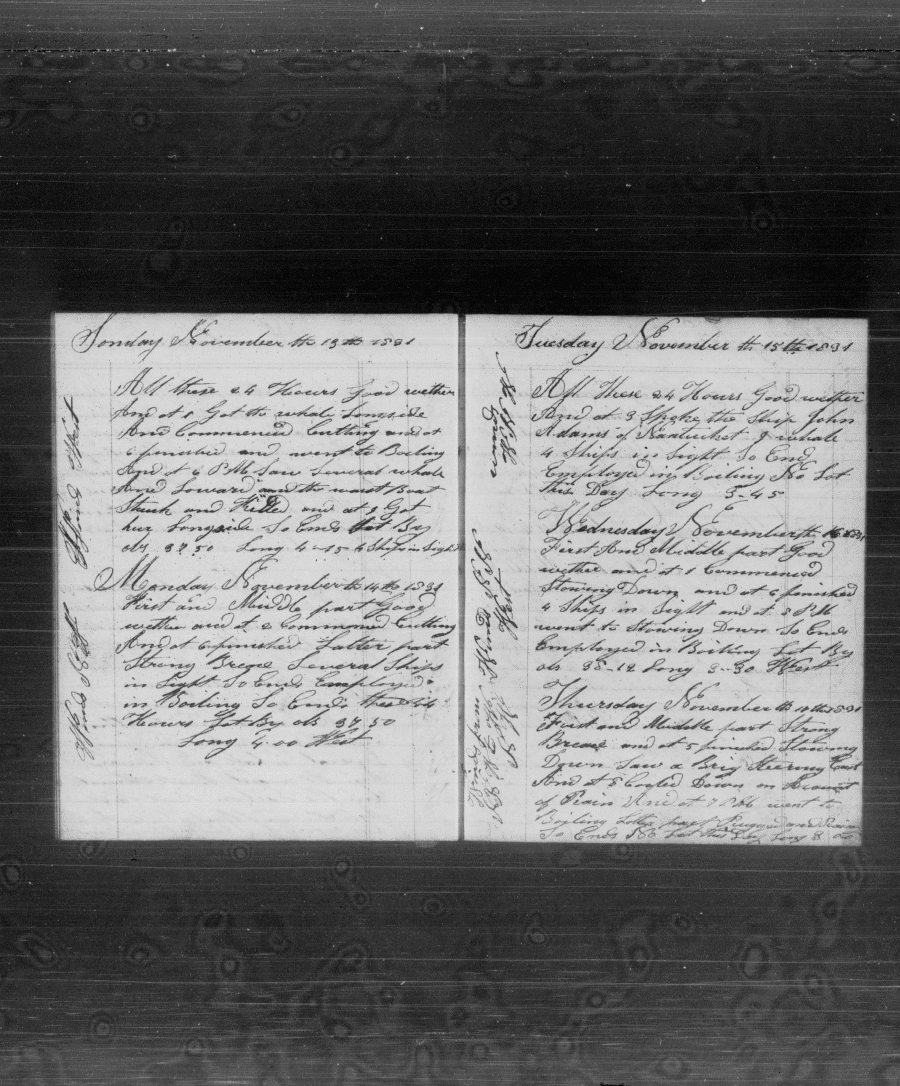 Sonday November th 13th 1831
All these 24 Hours Good wether
And at 1 Got the whale Longside
And Commenced Cutting and at
6 finished and went to Boiling
And at 6 P M Saw Several whale
And Loward and the waist Boat
Struck and Killed and at 9 Got
hur Longside So Ends Lat By
obs 37.50 Long 4-15 4 Ships in Sight
Wind South
West
Monday November th 14th 1831
First and Middle part Good
wether and at 2 Commenced Cutting
And at 6 finished Latter part
Strong Breeze Several Ships
in Sight So Ends Employed
in Boiling So Ends these 24
Hours Lat By obs 37.50
Long 4.00 West
Tuesday November th 15th 1831
All These 24 Hours Good wether
And at 3 Spoke the Ship John
Adams of Nantucket 9 whale
4 Ships in Sight So Ends
Employed in Boiling No Lat
This Day Long 3-45
Wednesday November th 16 1831
First And Middle part Good
wether and at 1 Commenced
Stowing Down and at 6 finished
4 Ships in Sight and at 8 P M
went to Stowing Down So Ends
Employed in Boiling Lat By
obs 38-12 Long 3-30 West
Thursday November th 17th 1831
First and Middle part Strong
Breeze and at 5 finished Stowing
Down Saw a Brig Steering East
And at 5 Cooled Down on Account
of Rain And at 7 P M went to
Boiling Latter part Rugged and Rain
So Ends No Lat this Day Long 3